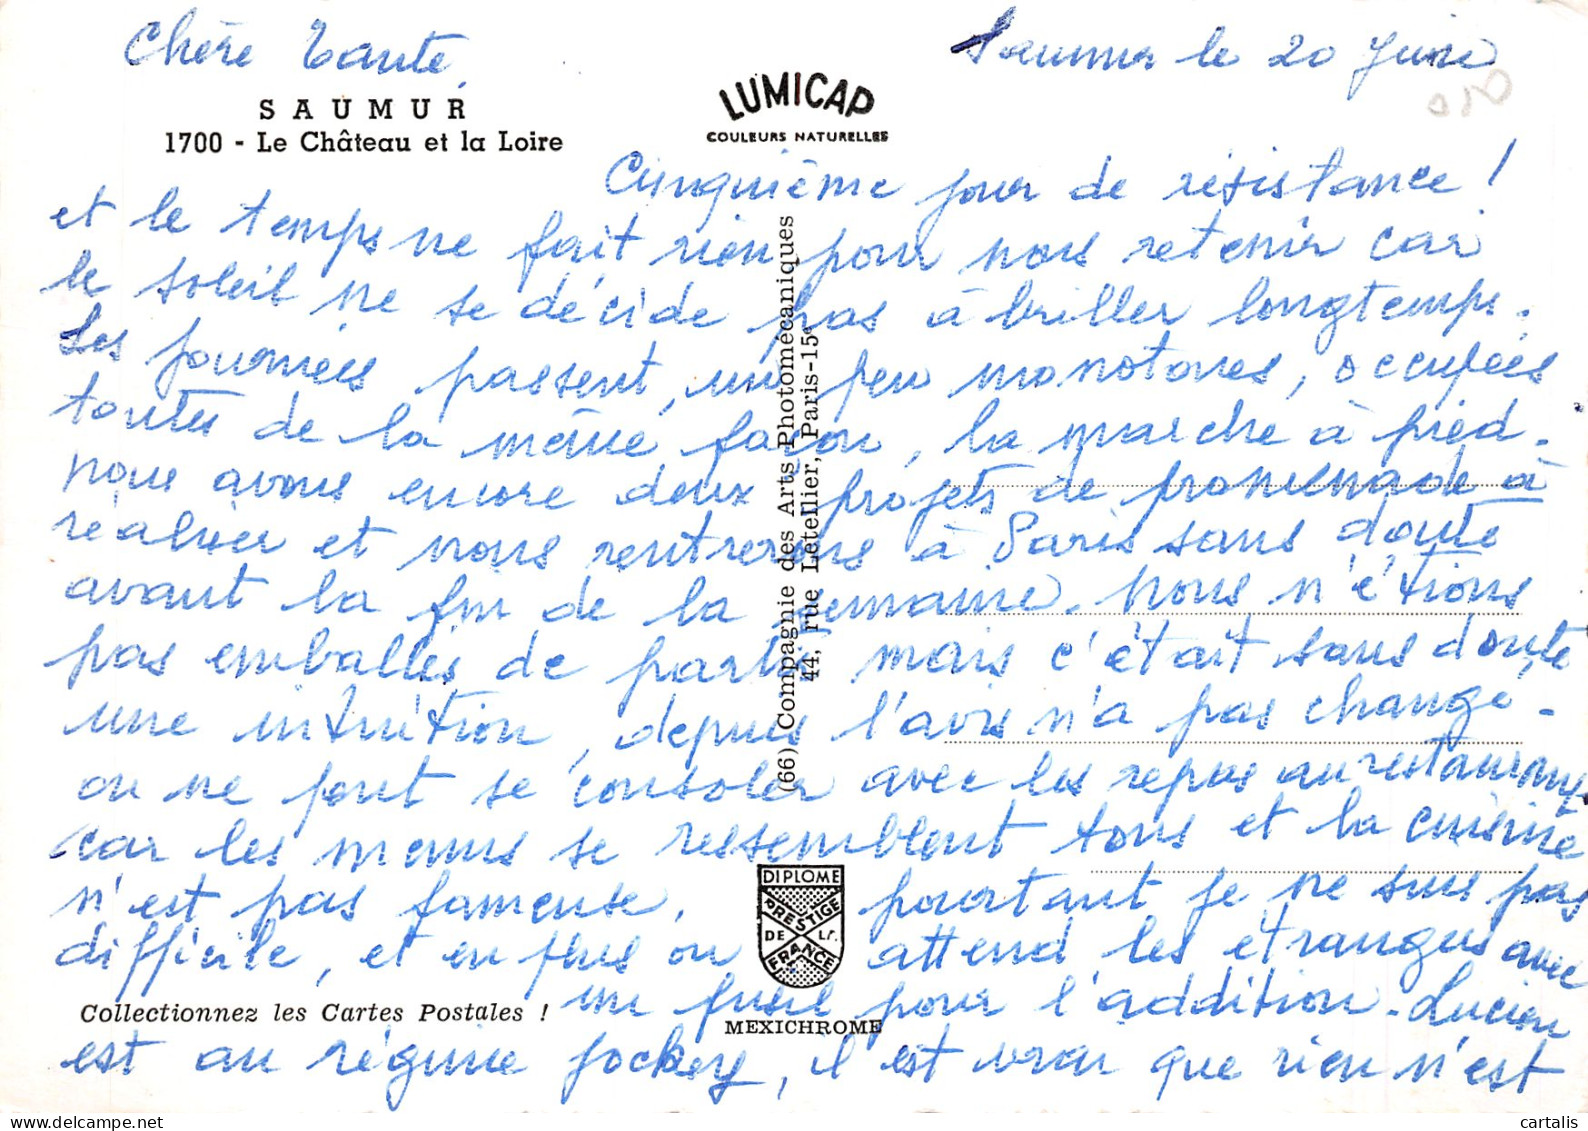 Chère Tante,
Saumur le 20 Juin
SAUMUR
1700 - Le Château et la Loire
LUMICAP
COULEURS NATURELLES
Cinquième jour de résistance !
et le temps ne fait rien pour nous retenir car
le soleil ne se décide pas à briller longtemps.
Les journées passent, un peu monotones, occupées
toutes de la même façon, la marche à pied.
nous avons encore deux projets de promenade à
réaliser et nous rentrerons à Paris sans doute
avant la fin de la semaine. Nous n'étions
pas emballés de partir mais c'était sans doute
une intuition, depuis l'avis n'a pas changé.
on ne peut se consoler avec les repas au restaurant,
car les menus se ressemblent tous et la cuisine
n'est pas fameuse. pourtant je ne suis pas
difficile, et en plus on attend les étrangers avec
un fusil pour l'addition. Lucien
est au régime jockey, il est vrai que rien n'est
(66) Compagnie des Arts Photomécaniques
44, rue Letellier, Paris-15e
DIPLOME
PRESTIGE
DE LA
FRANCE
MEXICHROME
Collectionnez les Cartes Postales !
cartalis.com